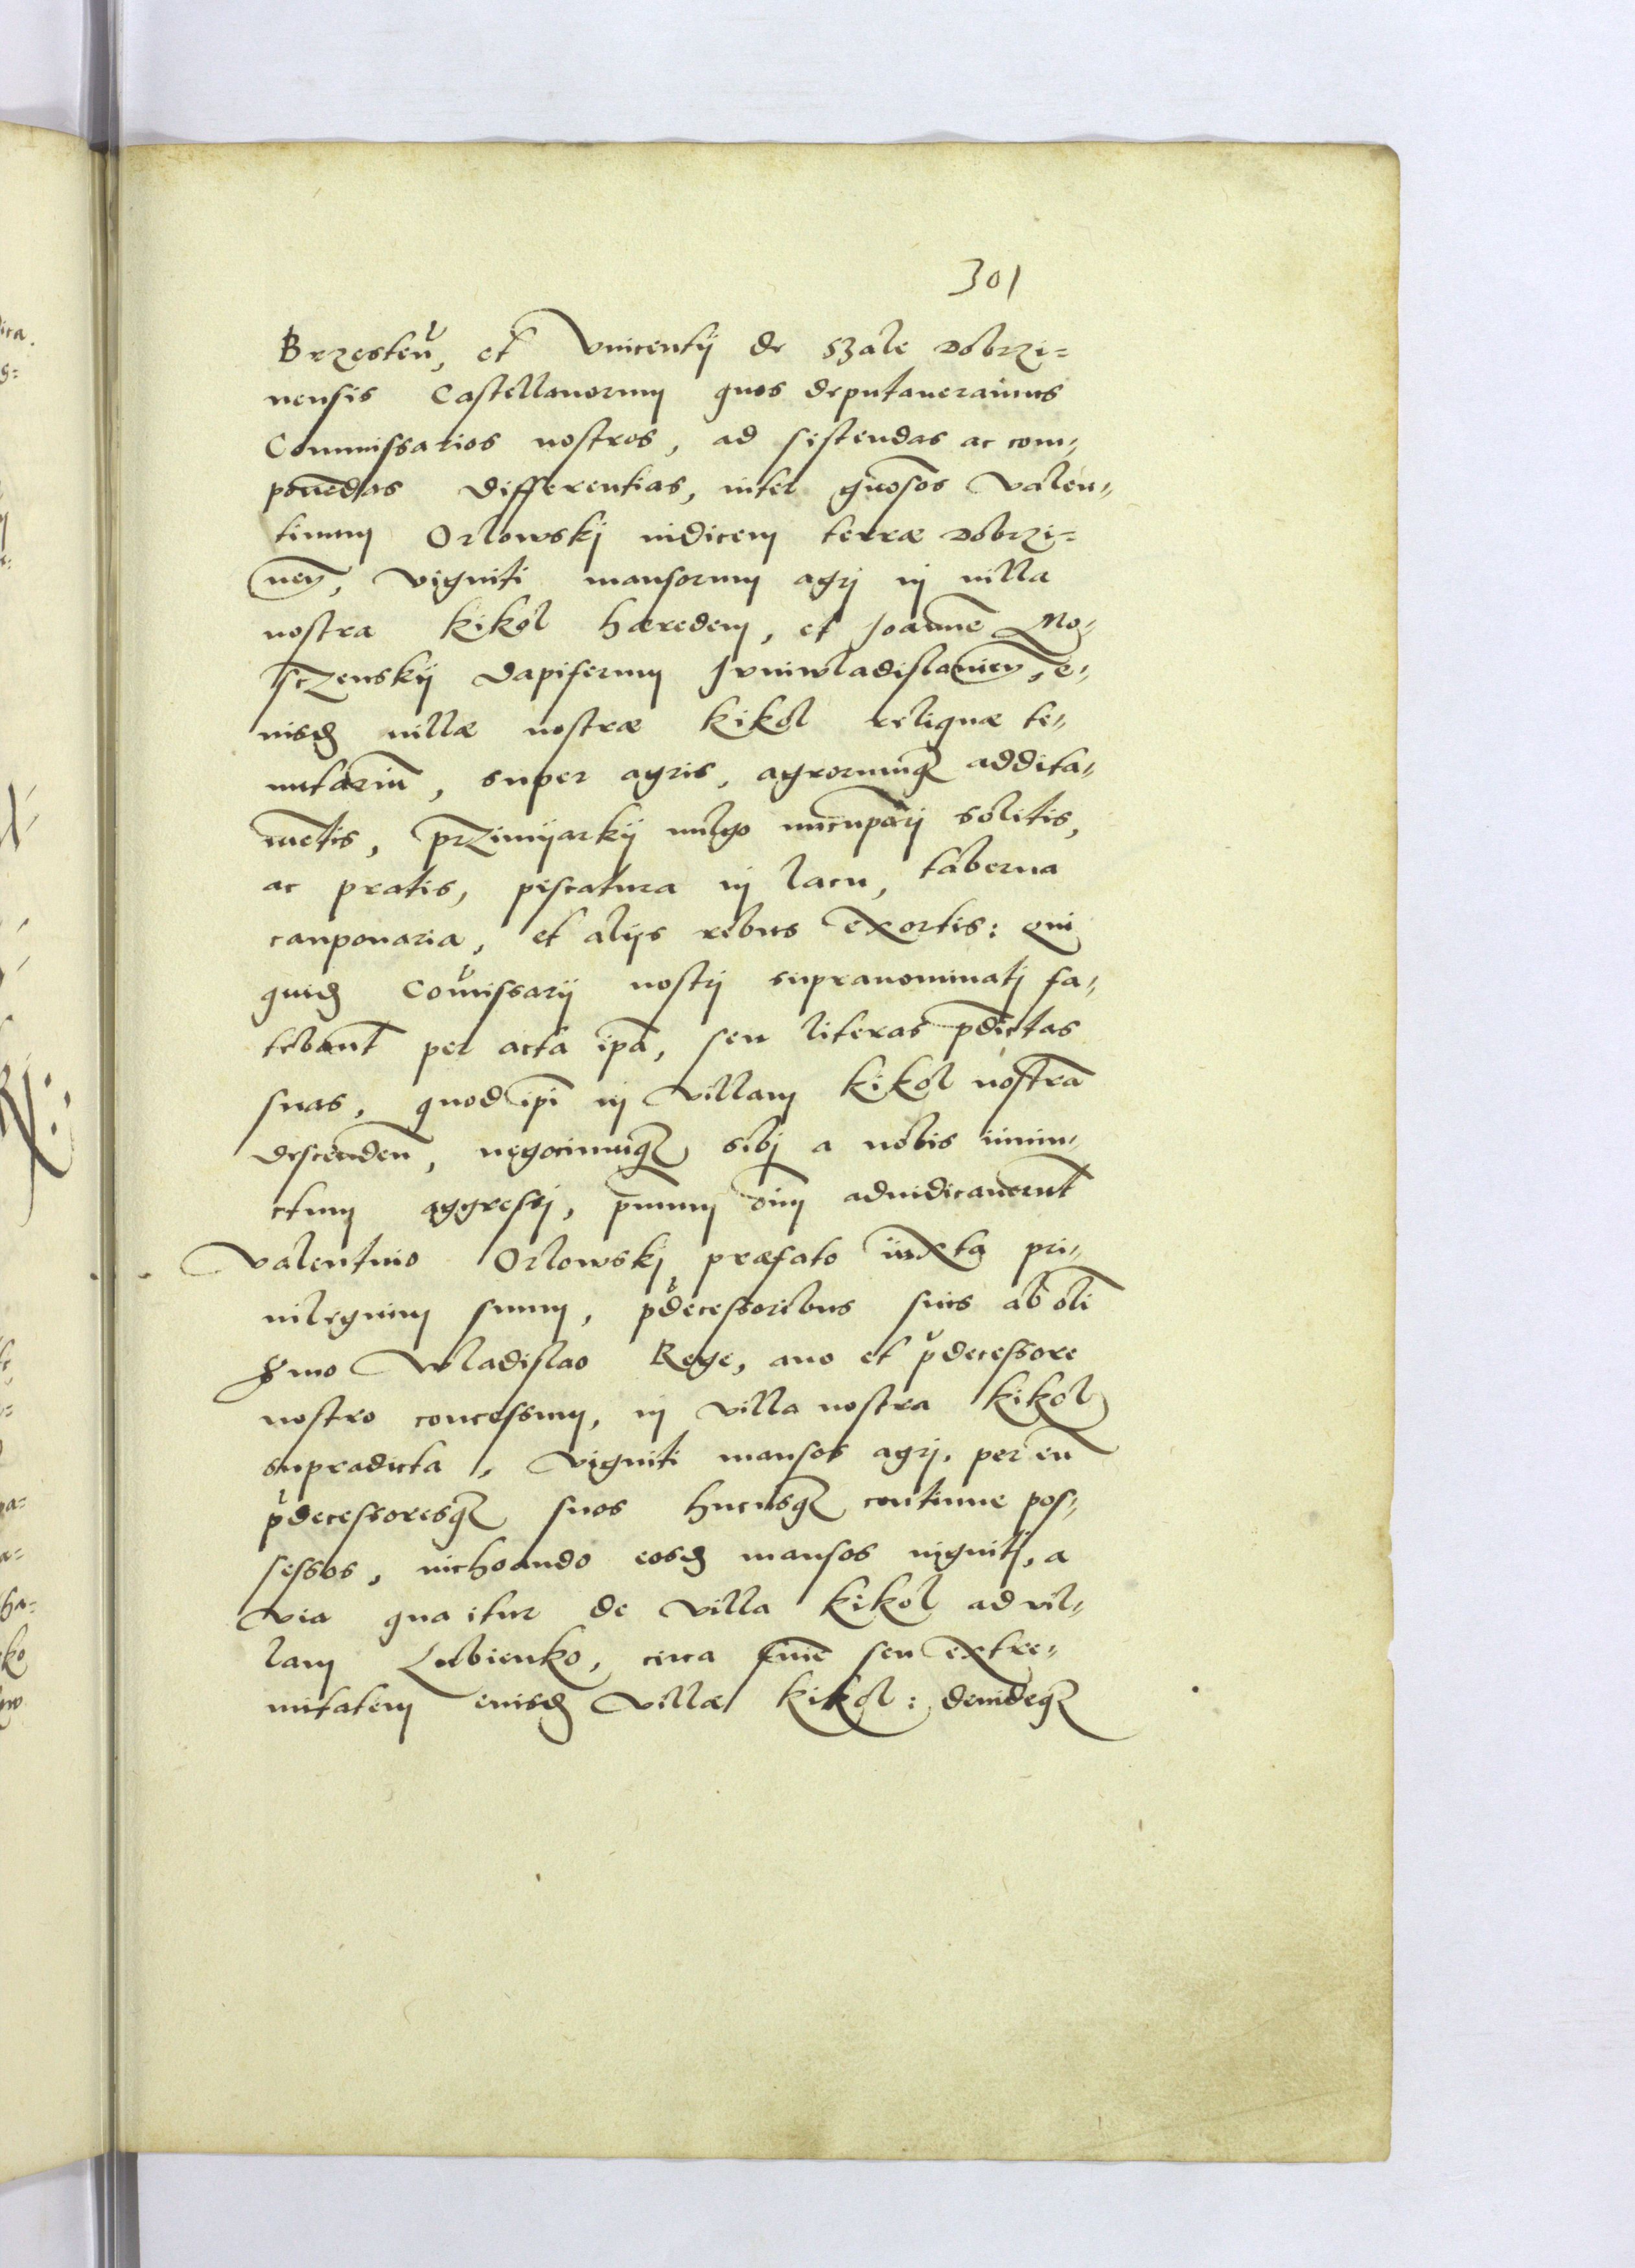 301
Brzesteñ, et Vincentij de Szale Dobrzi=
nensis Castellanorum quos deputaueramus
Commissarios nostros, ad sistendas ac com,,
ponēdas differentias, inter gñosos Valen,,
tinum Orlowskj iudicem terræ Dobrzi=
neñ, viginti mansorum agrj in uilla
nostra Kikol hæredem, et Joannē Mo,,
sczenskij dapiferum Junivladislauieñ, e,,
iusdē uillæ nostræ Kikol reliquæ te,,
nutariū, super agris, agrorumq̃ addita,,
mētis, przimijarkij uulgo nuncuparj solitis,
ac pratis, piscatura in lacu, taberna
cauponaria, et alijs rebus exortis: qui
quidē Cōmissarij nostrj supranominatj fa,,
tebant̃ per acta ip̃a, seu literas p̃dictas
suas, quod ip̃i in villam Kikol nostrā
descendeñ, negociumq̃ sibj a nobis iniun,,
ctum aggressj, p̃mum oĩm adiudicauerunt
Valentino Orlowskj præfato iuxta pri,,
uilegium suum, p̃decessoribus suis ab olĩ
Sr̃mo Wladislao Rege, auo et p̃decessore
nostro concessum, in villa nostra Kikol
supradicta, viginti mansos agrj, per eū
p̃decessoresq̃ suos hucusq̃ continue pos,,
sessos, inchoando eosdē mansos uigintj, a
via qua itur de villa Kikol ad vil,,
lam Lubienko, circa finē seu extre,,
mitatem eiusdē villæ Kikol: deindeq̃